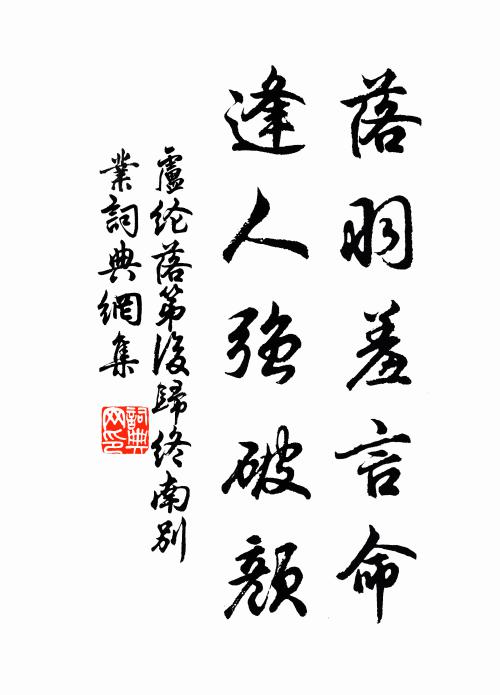 落羽羞言命
逢人強破顏
盧纶落第後歸終南別
業詞典網集
詞典
网印